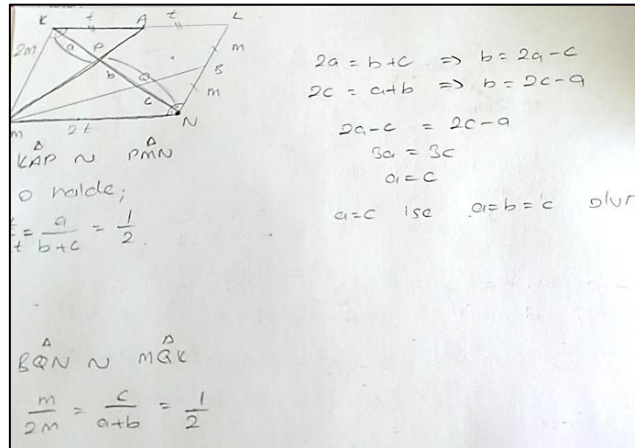 K t A t L
2m a P m
b Q B
c m
M 2t N
KAP ~ PMN
O halde;
t/2t = a/b+c = 1/2
BQN ~ MQK
m/2m = c/a+b = 1/2
2a = b+c => b = 2a-c
2c = a+b => b = 2c-a
2a-c = 2c-a
3a = 3c
a = c
a=c ise a=b=c olur